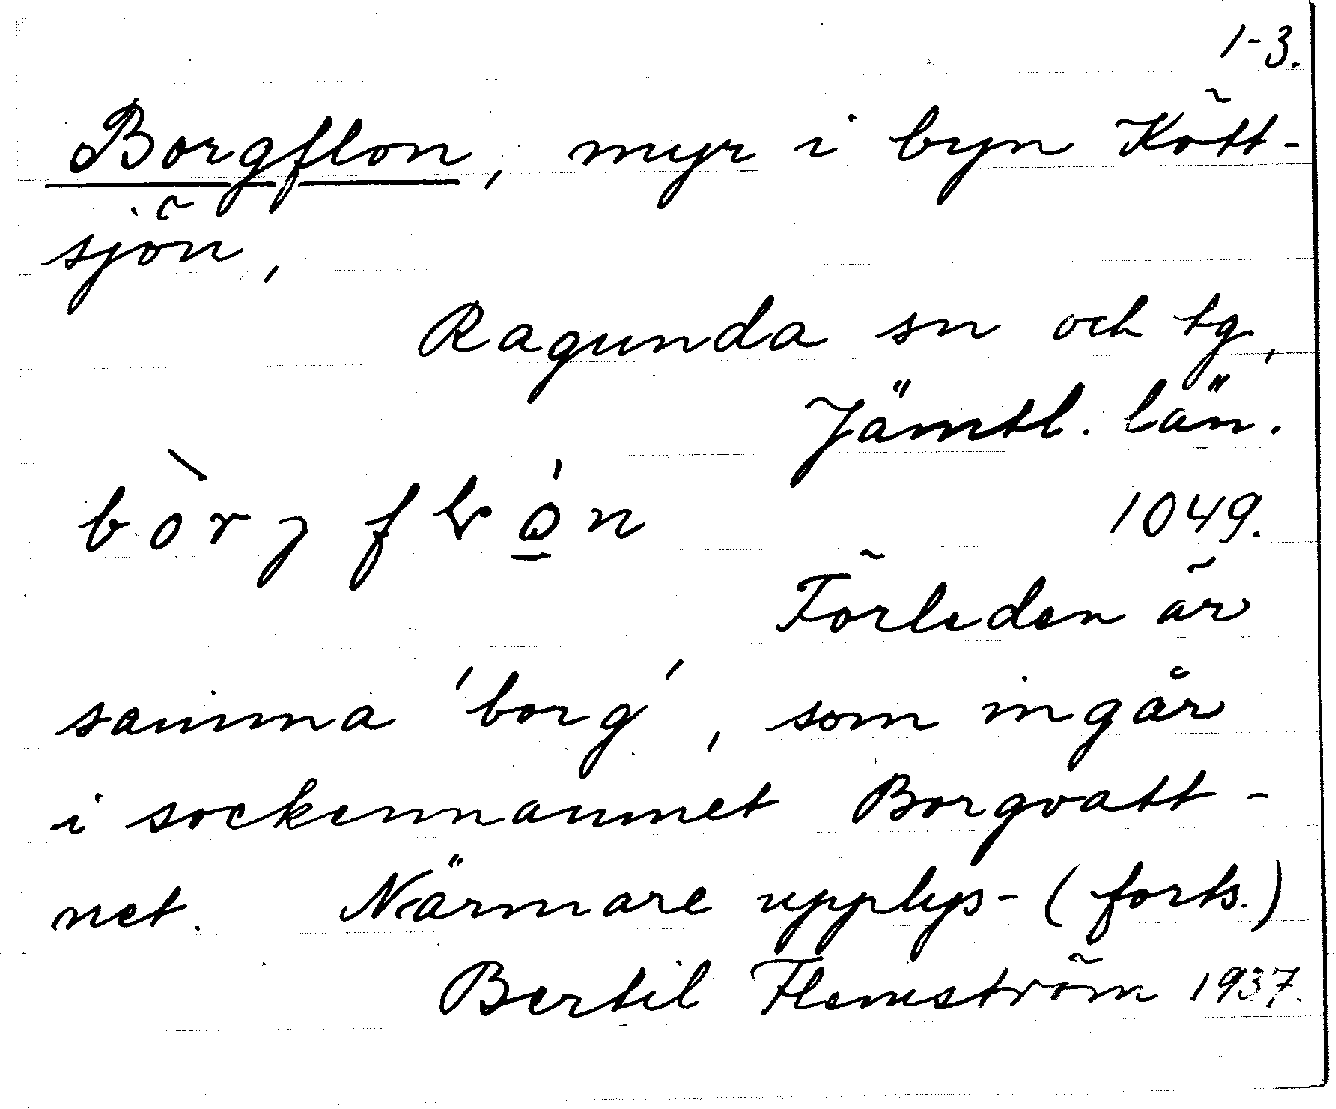 1-3.
Borgflon, myr i byn Kött-
sjön,
Ragunda sn och tg,
Jämtl. län.
1049.
Förleden är
samma 'borg', som ingår
i sockennamnet Borgvatt-
net. Närmare upplys- (forts.)
Bertil Flemström 1937.